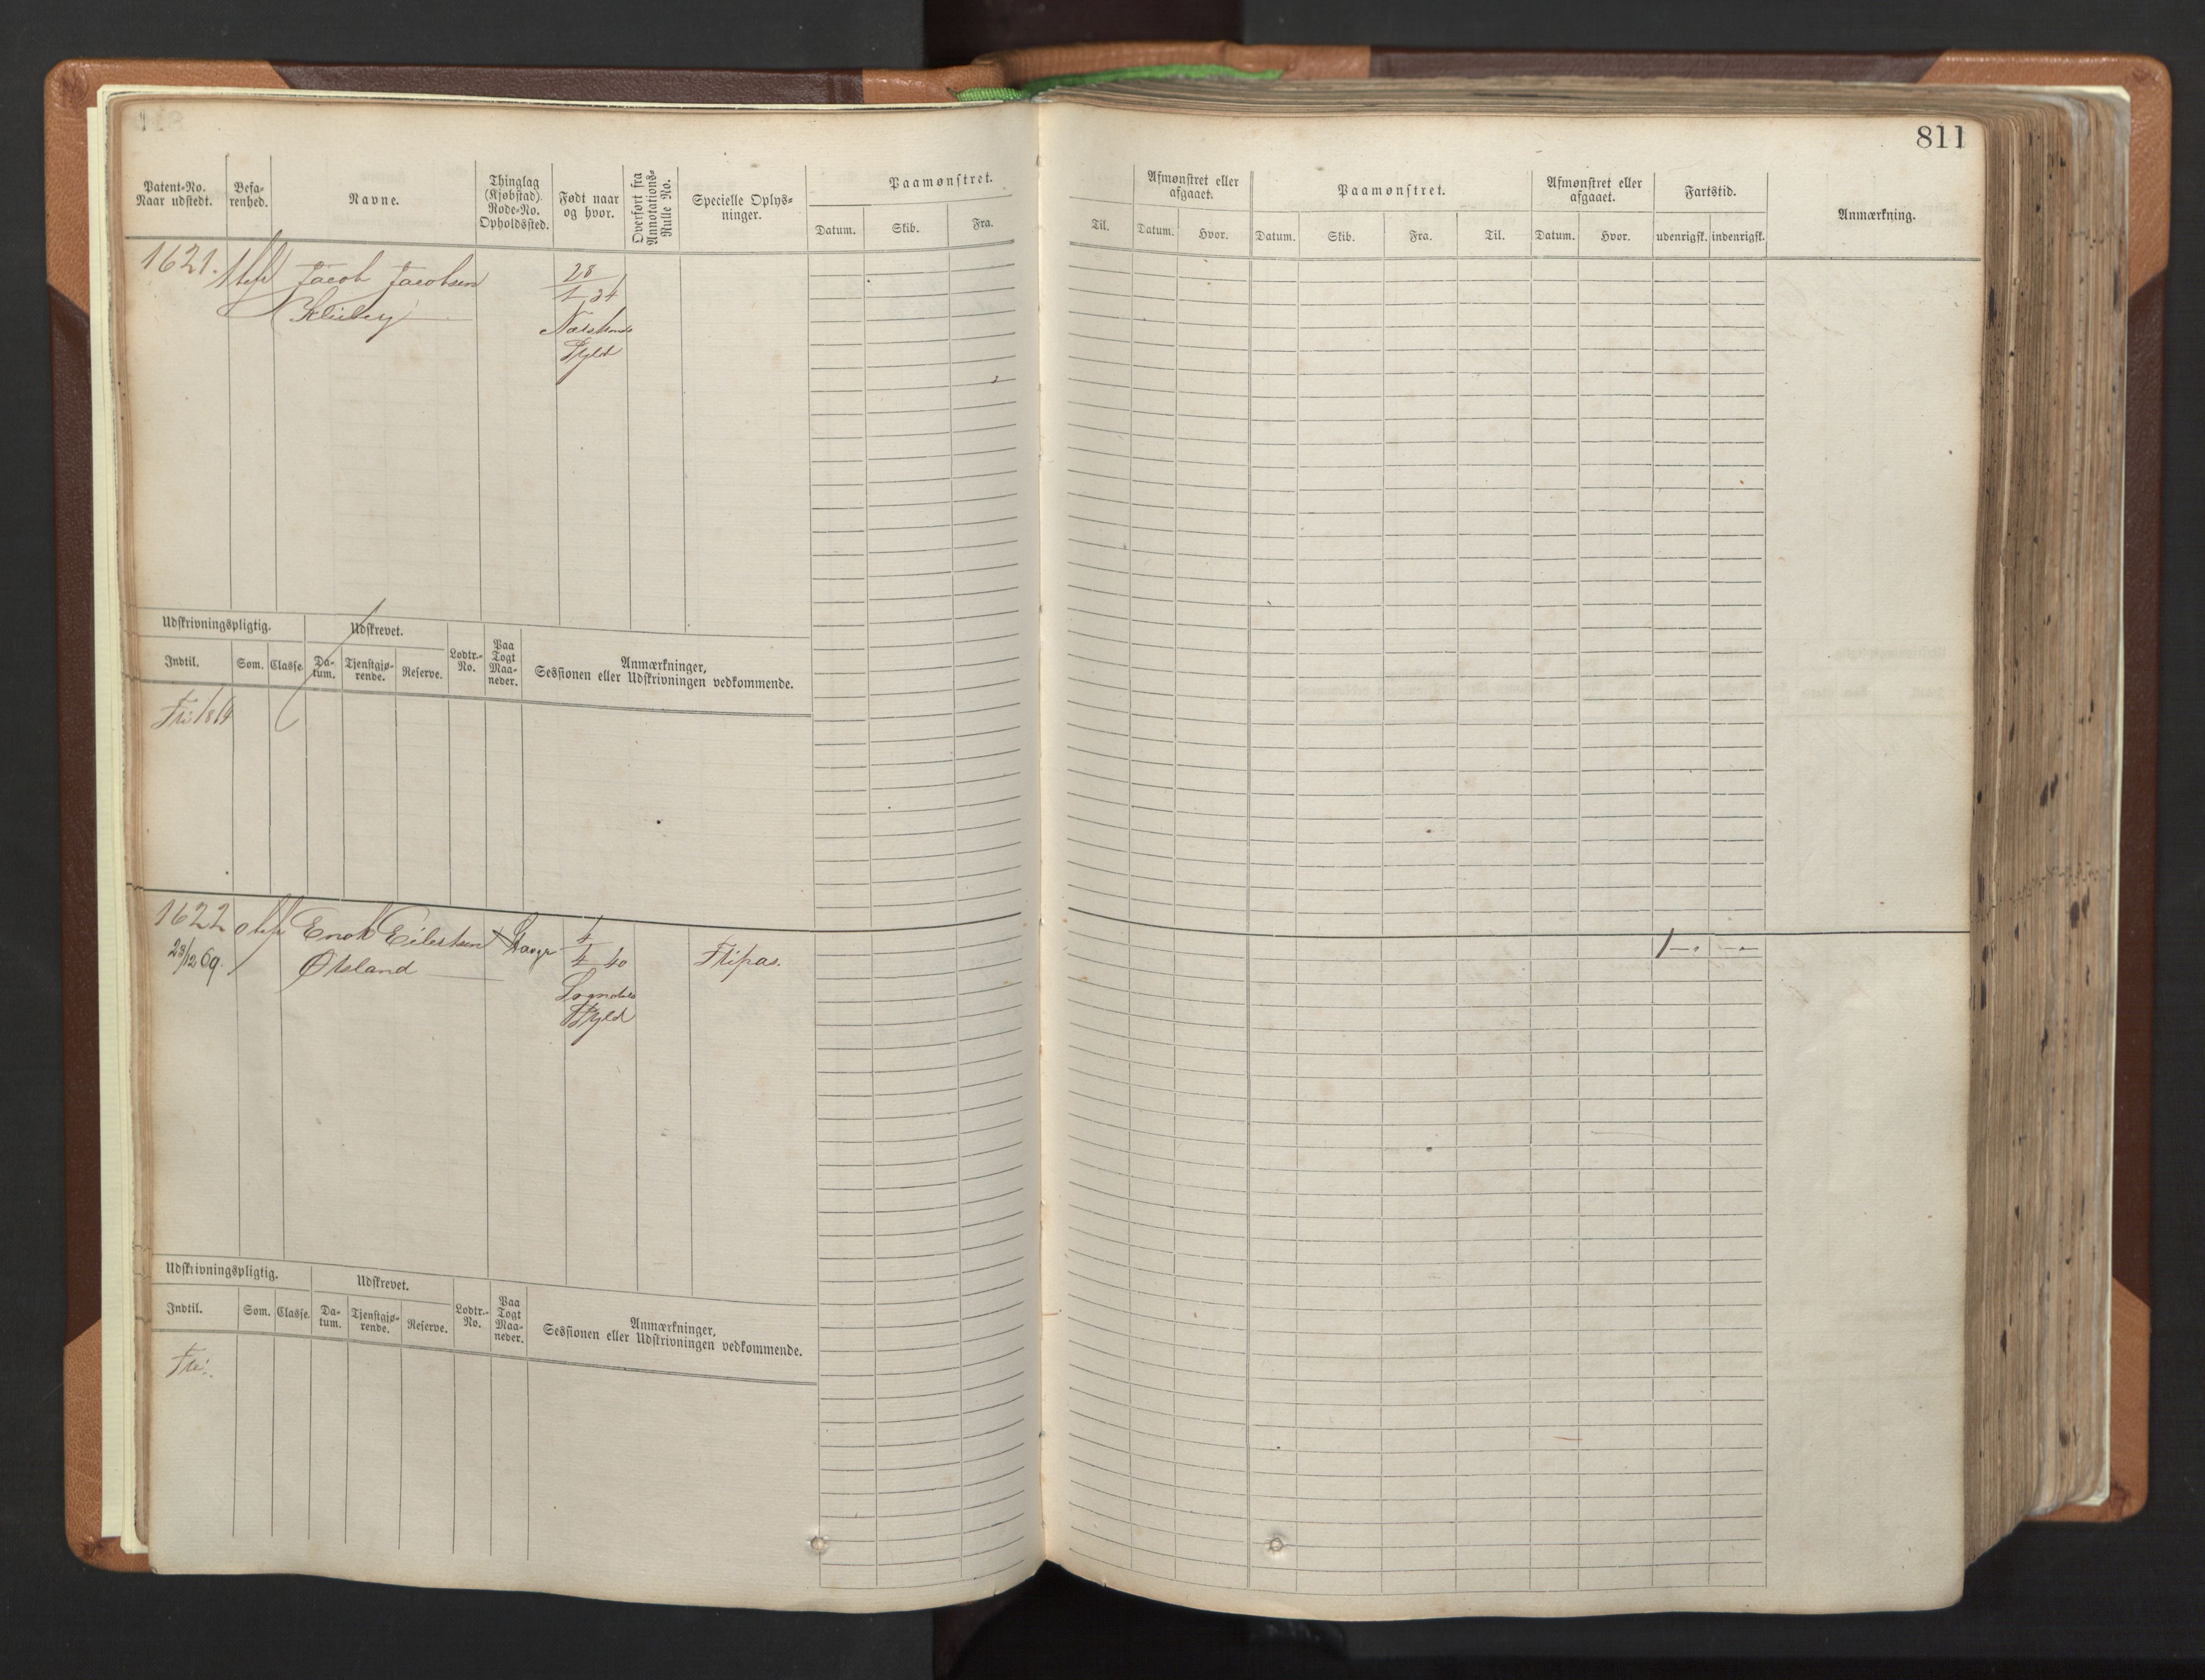 811
Patent-No. Naar udstedt.
Befa-renhed.
Navne.
Thinglag (Kjøbstad) Rode-No. Opholdssted.
Født naar og hvor.
Overført fra Annotations-Rulle No.
Specielle Oplys-ninger.
Paamønstret.
Datum.
Skib.
Fra.
Til.
Afmønstret eller afgaaet.
Datum.
Hvor.
Paamønstret.
Datum.
Skib.
Fra.
Til.
Afmønstret eller afgaaet.
Datum.
Hvor.
Fartstid.
udenrigsk.
indenrigsk.
Anmærkning.
1621.
Jacob Jacobsen
28
1 34
Fjeld
Udskrivningspligtig.
Udskrevet.
Indtil.
Som.
Classe.
Da-tum.
Tjenstgjø-rende.
Reserve.
Lodtr.-No.
Paa Togt Maa-neder.
Anmærkninger,
Sessionen eller Udskrivningen vedkommende.
Fri
1622
Enok Eilertsen
23/12 69.
Øtsland
4
4 40
Sogndals
Fjeld
Udskrivningspligtig.
Udskrevet.
Indtil.
Som.
Classe.
Da-tum.
Tjenstgjø-rende.
Reserve.
Lodtr.-No.
Paa Togt Maa-neder.
Anmærkninger,
Sessionen eller Udskrivningen vedkommende.
Fri.